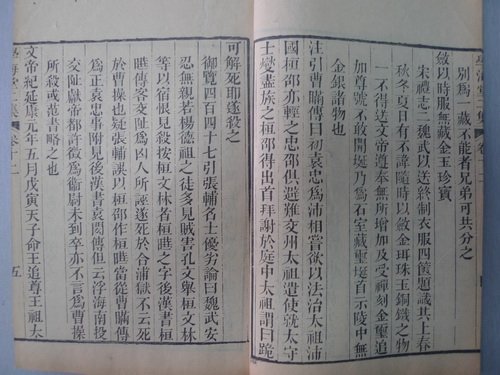 別爲一藏不能者兄弟可共分之
斂以時服無藏金玉珍寶
宋禮志二魏武以送終制衣服四篋題識其上春
秋冬夏日有不諱隨時以斂金珥珠玉銅鐵之物
一不得送文帝遵奉無所增加及受禪刻金璽追
加尊號不敢開埏乃爲石室藏璽埏首示陵中無
金銀諸物也
注引曹瞞傳曰初袁忠爲沛相嘗欲以法治太祖沛
國桓邵亦輕之忠邵俱避難交州太祖遣使就太守
士燮盡族之桓邵得出首拜謝於庭中太祖謂曰跪
可解死耶遂殺之
御覽四百四十七引張輔名士優劣論曰魏武安
忍無親若楊德祖之徒多見賊害孔文舉桓文林
等以宿恨見殺按桓文林者桓曄之字後漢書桓
曄傳客交趾爲凶人所誣遂死於合浦獄不云死
於曹操也疑張輔誤以桓邵作桓曄當從曹瞞傳
爲正袁忠事附見後漢書袁閎傳但云浮海南投
交趾獻帝都許徵爲衞尉未到卒亦不言爲曹操
所殺或范書略之也
文帝紀延康元年五月戊寅天子命王追尊王祖太
五